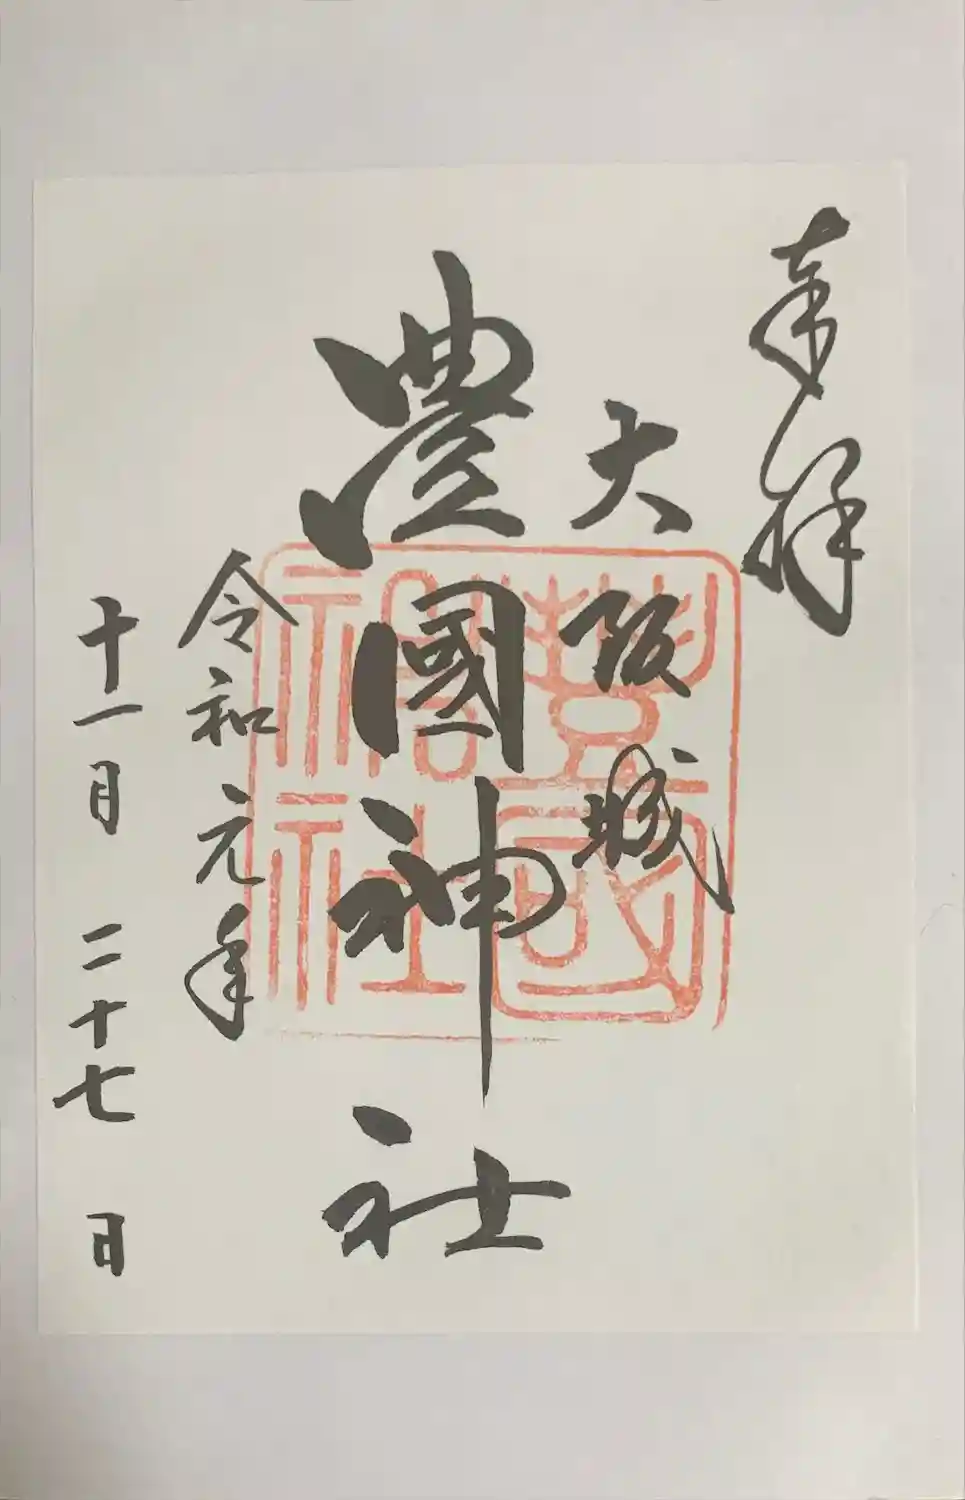 奉拝
大阪城
豊國神社
令和元年
十一月二十七日
豊國
神社